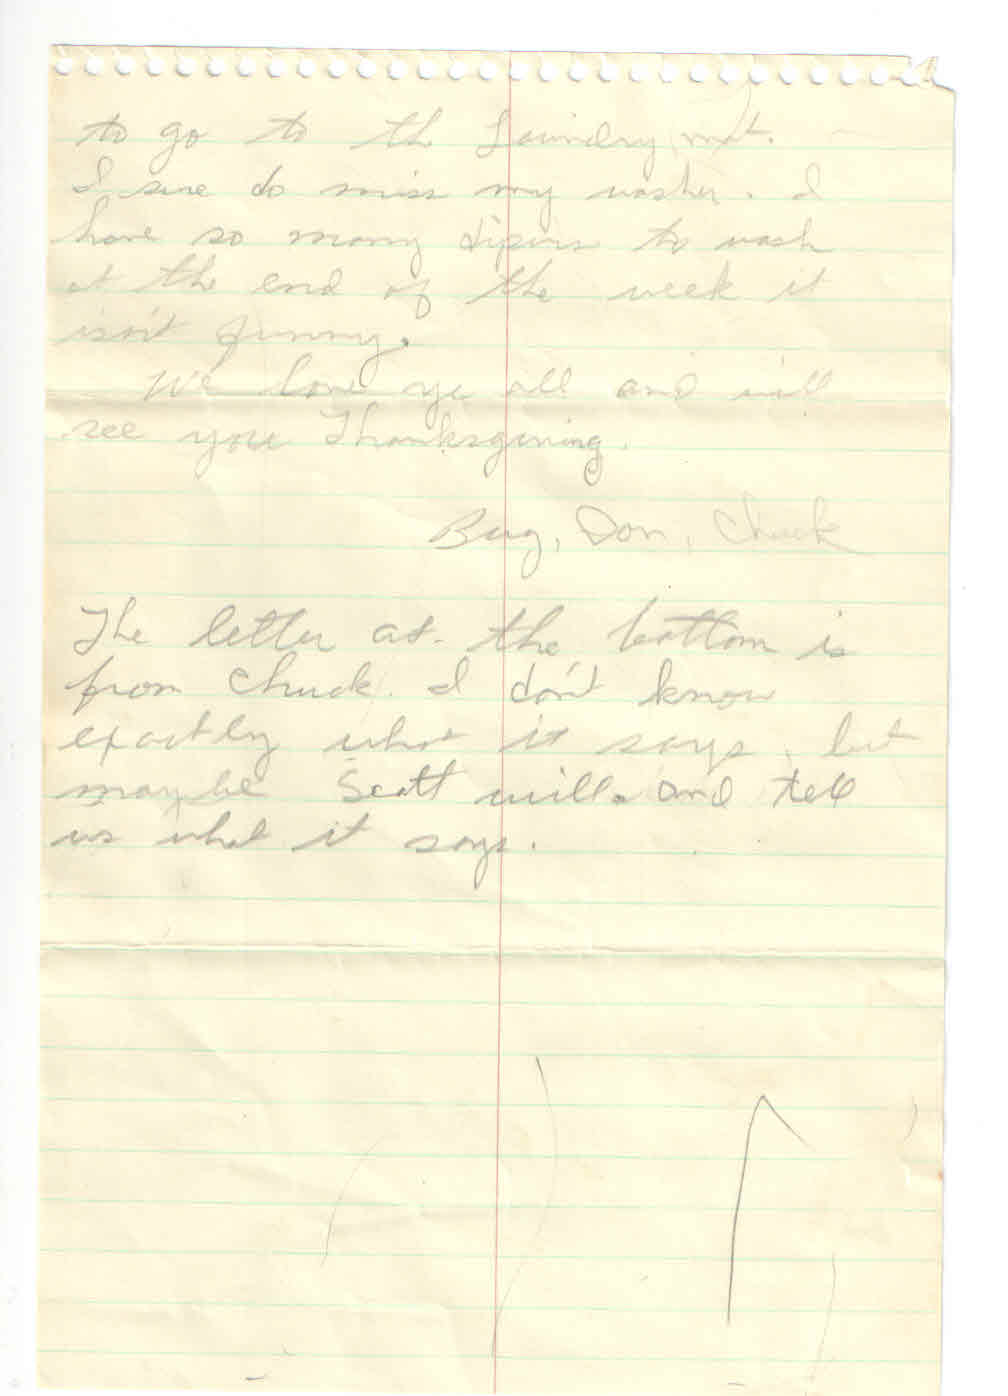 to go to th Laundry mt.
I sure do miss my washer. I
have so many dipers to wash
at the end of the week it
isn't funny.
We love ya all and will
see you Thanksgiving.
Bug, Don, Chuck
The letter at the bottom is
from Chuck. I don't know
exactly what it says, but
maybe Scott will. and tell
us what it says.